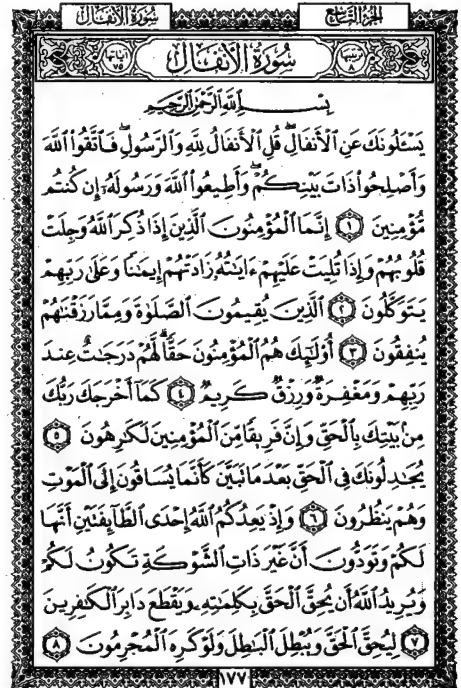 سُورَةُ الأَنْفَالِ الجُزْءُ التَّاسِعُ
ترتيبها ٨ سُورَةُ الأَنْفَالِ آياتها ٧٥
بِسْمِ ٱللَّهِ ٱلرَّحْمَٰنِ ٱلرَّحِيمِ
يَسْـَٔلُونَكَ عَنِ ٱلْأَنفَالِۖ قُلِ ٱلْأَنفَالُ لِلَّهِ وَٱلرَّسُولِۖ فَٱتَّقُوا۟ ٱللَّهَ
وَأَصْلِحُوا۟ ذَاتَ بَيْنِكُمْۖ وَأَطِيعُوا۟ ٱللَّهَ وَرَسُولَهُۥٓ إِن كُنتُم
مُّؤْمِنِينَ ١ إِنَّمَا ٱلْمُؤْمِنُونَ ٱلَّذِينَ إِذَا ذُكِرَ ٱللَّهُ وَجِلَتْ
قُلُوبُهُمْ وَإِذَا تُلِيَتْ عَلَيْهِمْ ءَايَٰتُهُۥ زَادَتْهُمْ إِيمَٰنًا وَعَلَىٰ رَبِّهِمْ
يَتَوَكَّلُونَ ٢ ٱلَّذِينَ يُقِيمُونَ ٱلصَّلَوٰةَ وَمِمَّا رَزَقْنَٰهُمْ
يُنفِقُونَ ٣ أُو۟لَٰٓئِكَ هُمُ ٱلْمُؤْمِنُونَ حَقًّاۚ لَّهُمْ دَرَجَٰتٌ عِندَ
رَبِّهِمْ وَمَغْفِرَةٌ وَرِزْقٌ كَرِيمٌ ٤ كَمَآ أَخْرَجَكَ رَبُّكَ
مِنۢ بَيْتِكَ بِٱلْحَقِّ وَإِنَّ فَرِيقًا مِّنَ ٱلْمُؤْمِنِينَ لَكَٰرِهُونَ ٥
يُجَٰدِلُونَكَ فِى ٱلْحَقِّ بَعْدَ مَا تَبَيَّنَ كَأَنَّمَا يُسَاقُونَ إِلَى ٱلْمَوْتِ
وَهُمْ يَنظُرُونَ ٦ وَإِذْ يَعِدُكُمُ ٱللَّهُ إِحْدَى ٱلطَّآئِفَتَيْنِ أَنَّهَا
لَكُمْ وَتَوَدُّونَ أَنَّ غَيْرَ ذَاتِ ٱلشَّوْكَةِ تَكُونُ لَكُمْ
وَيُرِيدُ ٱللَّهُ أَن يُحِقَّ ٱلْحَقَّ بِكَلِمَٰتِهِۦ وَيَقْطَعَ دَابِرَ ٱلْكَٰفِرِينَ
٧ لِيُحِقَّ ٱلْحَقَّ وَيُبْطِلَ ٱلْبَٰطِلَ وَلَوْ كَرِهَ ٱلْمُجْرِمُونَ ٨
١٧٧